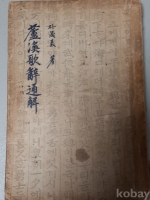 朴晟義 著
蘆溪歌辭通解
kobay